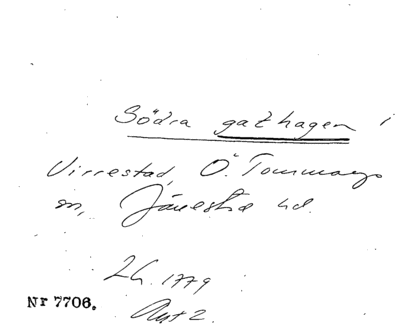 Södra gathagen i
Virrestad, Ö. Tommarps
sn, Järrestad hd.
LG. 1779
Nr 7706.
Akt 2.